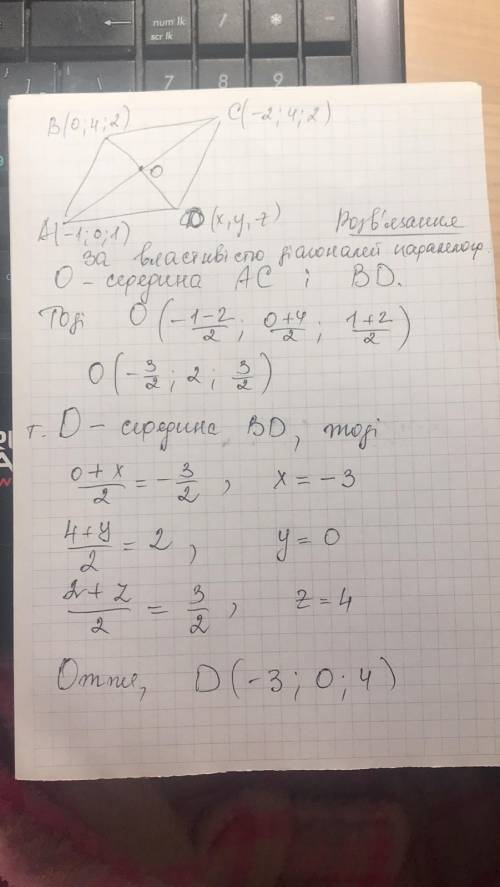 num lk
scr lk
7
8
9
B(0; 4; 2)
C(-2; 4; 2)
O
A(-1; 0; 1)
D(x, y, z)
Розв'язання
За властивістю діагоналей паралелогр.
O - середина AC і BD.
Тоді O(\frac{-1-2}{2}; \frac{0+4}{2}; \frac{1+2}{2})
O(-\frac{3}{2}; 2; \frac{3}{2})
т. D - середина BD, тоді
\frac{0+x}{2} = -\frac{3}{2}, x = -3
\frac{4+y}{2} = 2, y = 0
\frac{2+z}{2} = \frac{3}{2}, z = 4
Отже, D(-3; 0; 4)